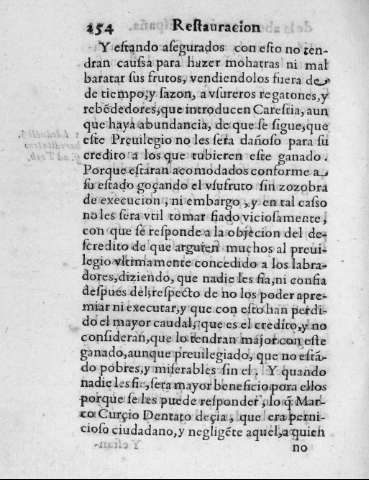 254 Restauracion
Y estando asegurados con esto no ten-
dran caussa para hazer mohatras ni mal
baratar sus frutos, vendiendolos fuera de
de tiempo, y sazon, a vsureros regatones, y
rebẽdedores, que introducen Carestia, aun
que haya abundancia, de que se sigue, que
este Preuilegio no les sera dañoso para su
credito a los que tubieren este ganado.
Porque estaran acomodados conforme a
su estado goçando el vsufruto sin zozobra
de execucion, ni embargo, y en tal casso
no les sera vtil tomar fiado viciosamente,
con que se responde a la objecion del de-
scredito de que arguren muchos al preui-
legio vltimamente concedido a los labra-
dores, diziendo, que nadie les fia, ni confia
despues del respecto de no los poder apre-
miar ni executar, y que con esto han perdi-
do el mayor caudal, que es el credito, y no
consideran, que lo tendran major con este
ganado, aunque preuilegiado, que no estã-
do pobres, y miserables sin el. Y quando
nadie les fie, sera mayor beneficio pora ellos
porque se les puede responder, lo q̃ Mar-
co Curçio Dentato deçia, que era perni-
cioso ciudadano, y negligẽte aquel, a quien
no